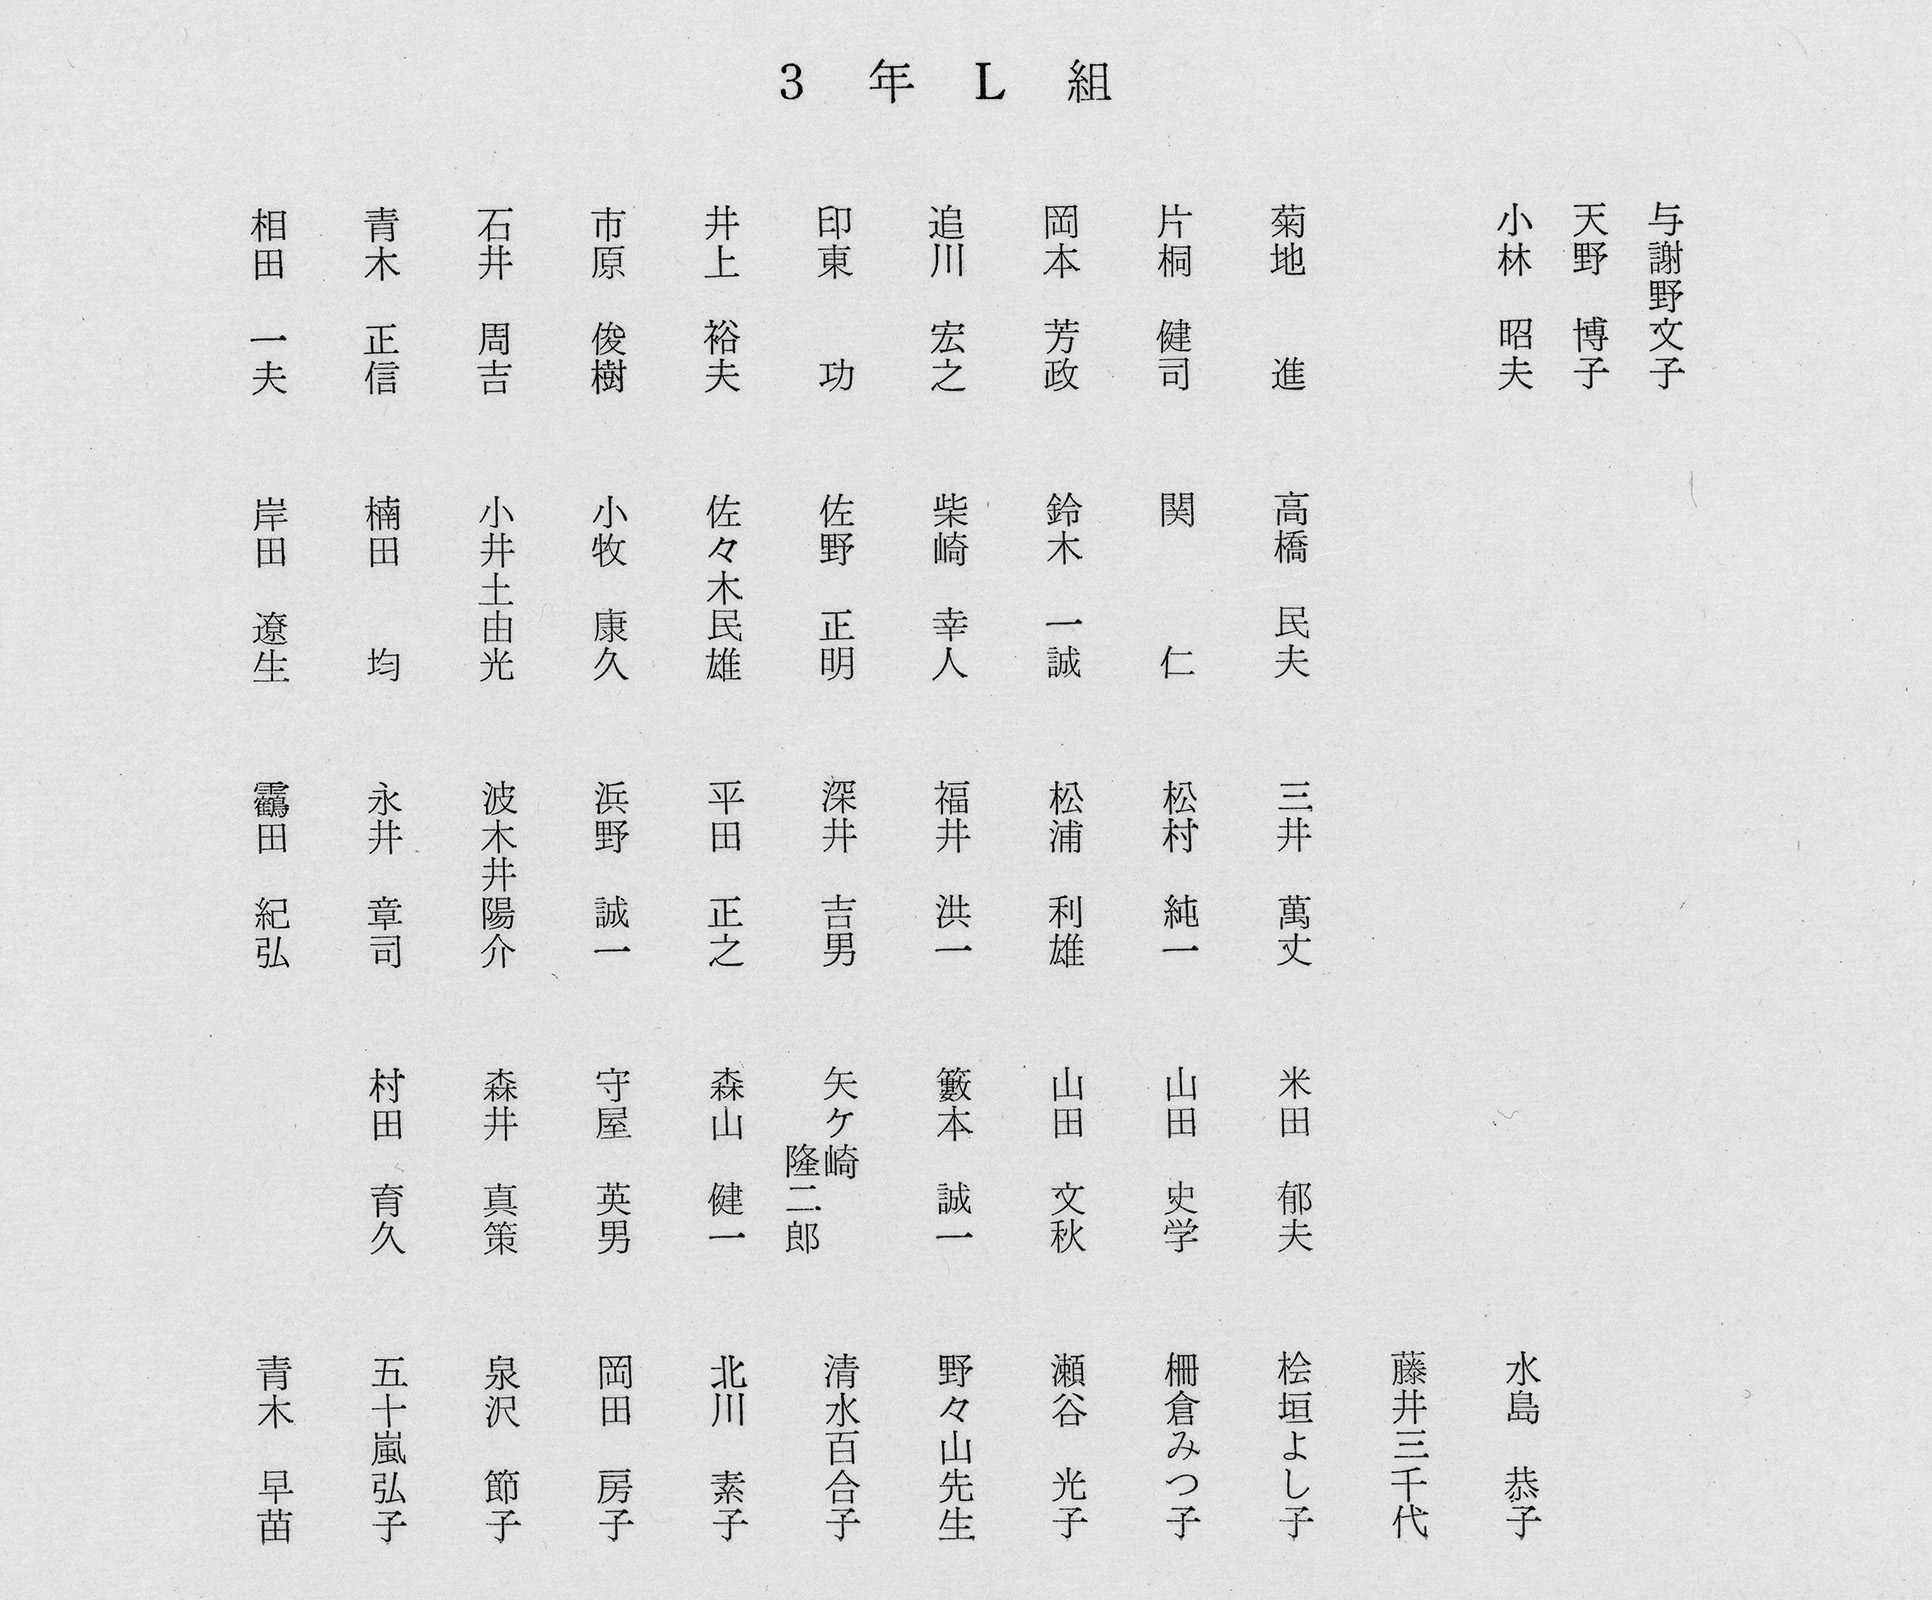 3年L組
相田 一夫
青木 正信
石井 周吉
市原 俊樹
井上 裕夫
印東 功
追川 宏之
岡本 芳政
片桐 健司
菊地 進
小林 昭夫
天野 博子
与謝野文子
岸田 遼生
楠田 均
小井土由光
小牧 康久
佐々木民雄
佐野 正明
柴崎 幸人
鈴木 一誠
関 仁
高橋 民夫
靏田 紀弘
永井 章司
波木井陽介
浜野 誠一
平田 正之
深井 吉男
福井 洪一
松浦 利雄
松村 純一
三井 萬丈
村田 育久
森井 真策
守屋 英男
森山 健一
矢ケ崎 隆二郎
籔本 誠一
山田 文秋
山田 史学
米田 郁夫
青木 早苗
五十嵐弘子
泉沢 節子
岡田 房子
北川 素子
清水百合子
野々山先生
瀬谷 光子
柵倉みつ子
桧垣よし子
藤井三千代
水島 恭子